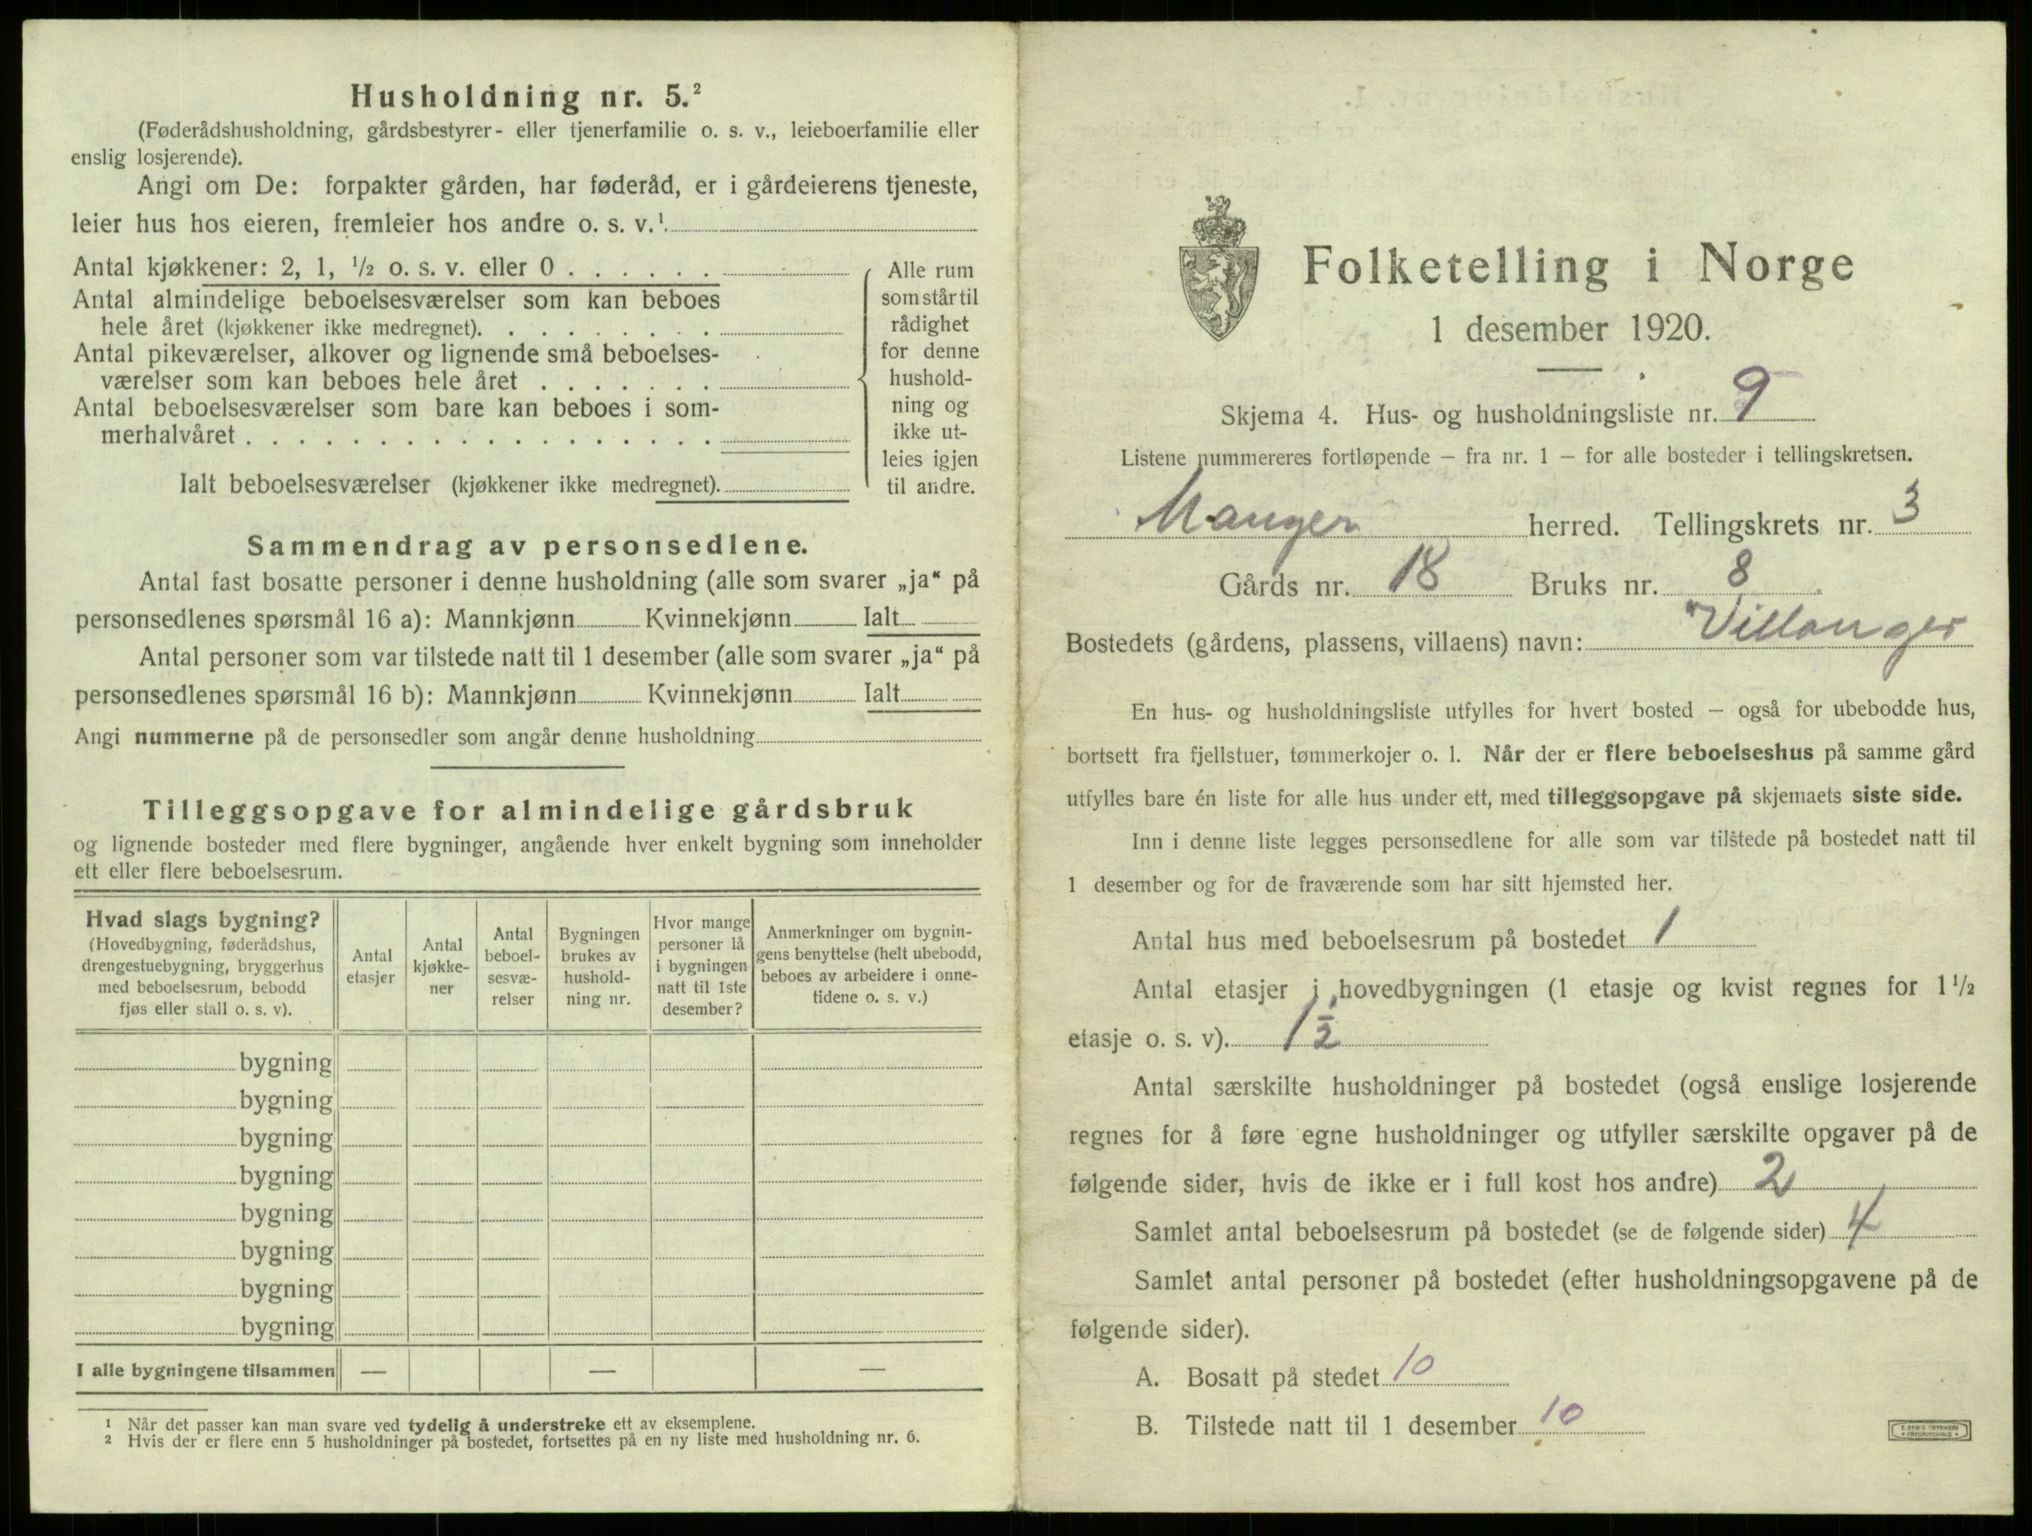 Husholdning nr. 5.²
(Føderådshusholdning, gårdsbestyrer- eller tjenerfamilie o. s. v., leieboerfamilie eller
enslig losjerende).
Angi om De: forpakter gården, har føderåd, er i gårdeierens tjeneste,
leier hus hos eieren, fremleier hos andre o. s. v.¹
Antal kjøkkener: 2, 1, ½ o. s. v. eller 0 . . . . . .
Antal almindelige beboelsesværelser som kan beboes
hele året (kjøkkener ikke medregnet). . . . . . . .
Antal pikeværelser, alkover og lignende små beboelses-
værelser som kan beboes hele året . . . . . . .
Antal beboelsesværelser som bare kan beboes i som-
merhalvåret . . . . . . . . . . . . . . . . . .
Ialt beboelsesværelser (kjøkkener ikke medregnet).
Alle rum
som står til
rådighet
for denne
hushold-
ning og
ikke ut-
leies igjen
til andre.
Sammendrag av personsedlene.
Antal fast bosatte personer i denne husholdning (alle som svarer „ja“ på
personsedlenes spørsmål 16 a): Mannkjønn Kvinnekjønn Ialt
Antal personer som var tilstede natt til 1 desember (alle som svarer „ja“ på
personsedlenes spørsmål 16 b): Mannkjønn Kvinnekjønn Ialt
Angi nummerne på de personsedler som angår denne husholdning
Tilleggsopgave for almindelige gårdsbruk
og lignende bosteder med flere bygninger, angående hver enkelt bygning som inneholder
ett eller flere beboelsesrum.
Hvad slags bygning?
(Hovedbygning, føderådshus,
drengestuebygning, bryggerhus
med beboelsesrum, bebodd
fjøs eller stall o. s. v).
Antal
etasjer
Antal
kjøkke-
ner
Antal
beboel-
sesvæ-
relser
Bygningen
brukes av
hushold-
ning nr.
Hvor mange
personer lå
i bygningen
natt til 1ste
desember?
Anmerkninger om bygnin-
gens benyttelse (helt ubebodd,
beboes av arbeidere i onne-
tidene o. s. v.)
bygning
bygning
bygning
bygning
bygning
bygning
bygning
bygning
I alle bygningene tilsammen — — —
¹ Når det passer kan man svare ved tydelig å understreke ett av eksemplene.
² Hvis der er flere enn 5 husholdninger på bostedet, fortsettes på en ny liste med husholdning nr. 6.
Folketelling i Norge
1 desember 1920.
Skjema 4. Hus- og husholdningsliste nr. 9
Listene nummereres fortløpende – fra nr. 1 – for alle bosteder i tellingskretsen.
Manger herred. Tellingskrets nr. 3
Gårds nr. 18 Bruks nr. 8
Bostedets (gårdens, plassens, villaens) navn: Villanger
En hus- og husholdningsliste utfylles for hvert bosted – også for ubebodde hus,
bortsett fra fjellstuer, tømmerkojer o. l. Når der er flere beboelseshus på samme gård
utfylles bare én liste for alle hus under ett, med tilleggsopgave på skjemaets siste side.
Inn i denne liste legges personsedlene for alle som var tilstede på bostedet natt til
1 desember og for de fraværende som har sitt hjemsted her.
Antal hus med beboelsesrum på bostedet 1
Antal etasjer i hovedbygningen (1 etasje og kvist regnes for 1 ½
etasje o. s. v). 1 ½
Antal særskilte husholdninger på bostedet (også enslige losjerende
regnes for å føre egne husholdninger og utfyller særskilte opgaver på de
følgende sider, hvis de ikke er i full kost hos andre) 2
Samlet antal beboelsesrum på bostedet (se de følgende sider) 4
Samlet antal personer på bostedet (efter husholdningsopgavene på de
følgende sider).
A. Bosatt på stedet 10
B. Tilstede natt til 1 desember 10